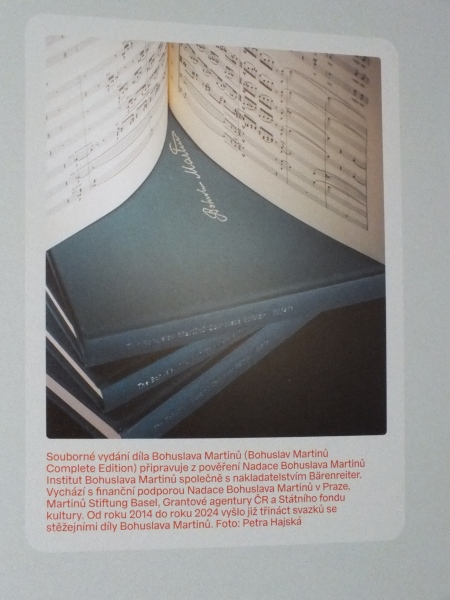 Bohuslav Martinů
The Bohuslav Martinů Complete Edition
Souborné vydání díla Bohuslava Martinů (Bohuslav Martinů
Complete Edition) připravuje z pověření Nadace Bohuslava Martinů
Institut Bohuslava Martinů společně s nakladatelstvím Bärenreiter.
Vychází s finanční podporou Nadace Bohuslava Martinů v Praze,
Martinů Stiftung Basel, Grantové agentury ČR a Státního fondu
kultury. Od roku 2014 do roku 2024 vyšlo již třináct svazků se
stěžejními díly Bohuslava Martinů. Foto: Petra Hajská